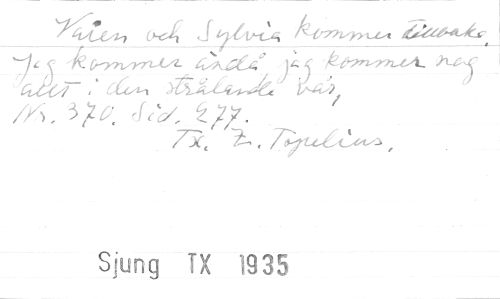 Våren och Sylvia kommer tillbaka.
Jag kommer ändå jag kommer nog
allt i den strålande vår,
Nr. 370. Sid. 277.
Tx. Z. Topelius.
Sjung TX 1935